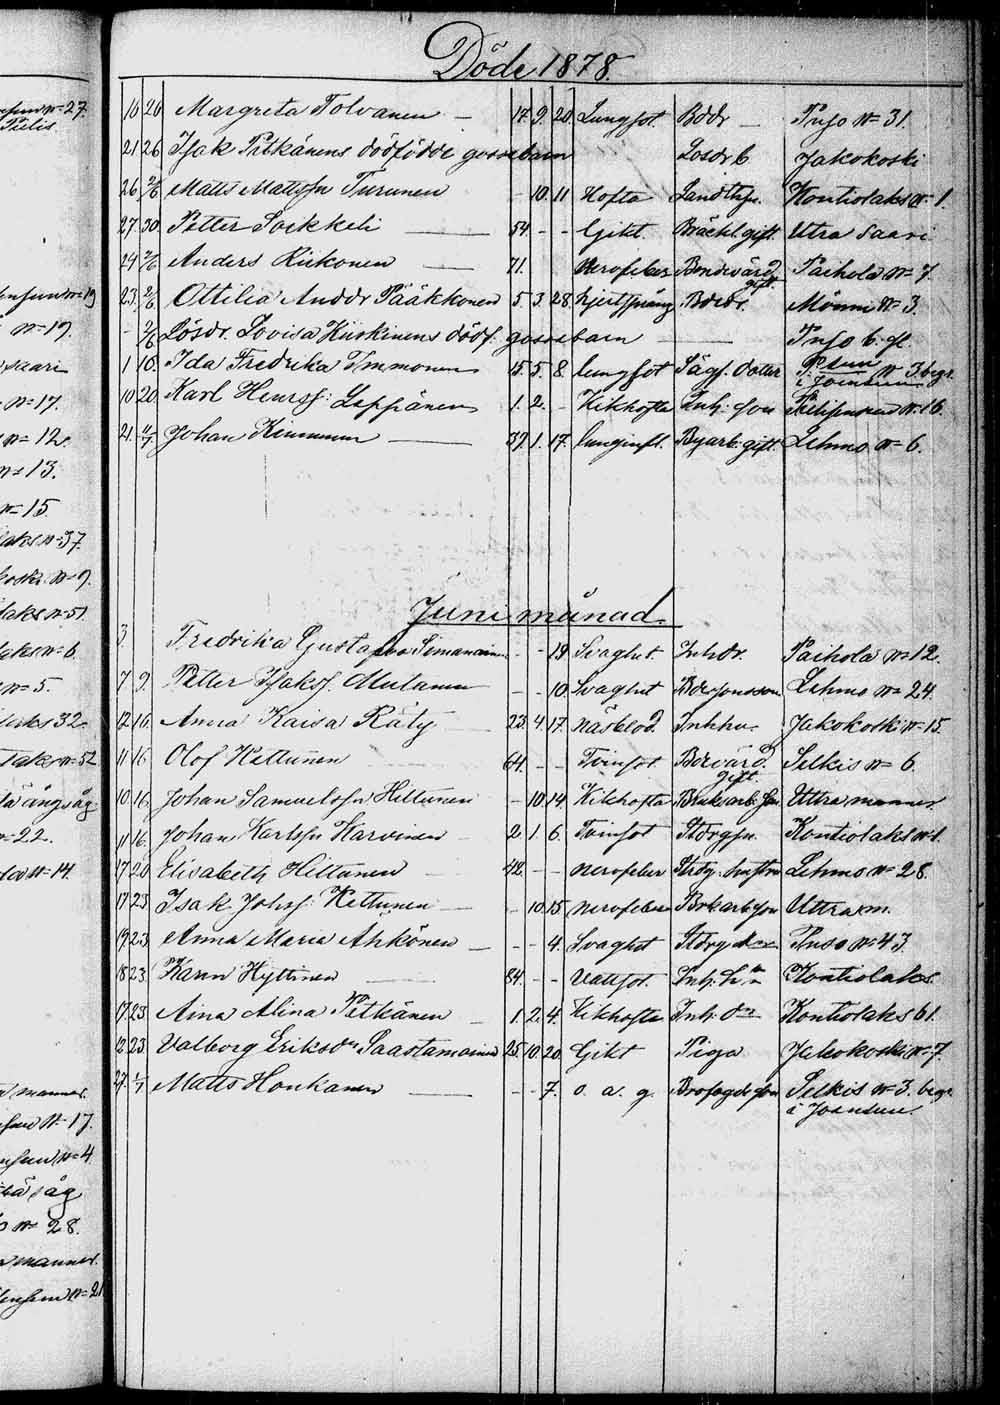 Döde 1878.
16 26 Margreta Tolvanen – 17. 9. 20. Lungsot. Bddr – Puso No 31.
21 26 Isak Pitkänens dödfödde gossebarn Losdr b Jakokoski
26 2/6 Matts Mattsn Turunen – 10. 11 Hosta Landthjn. Kontiolaks No 1.
27. 30. Petter Soikkeli – 54 – – Gikt. Bräckl. gift. Utra Saari
29 2/6 Anders Riikonen – 71. Nervfeber Bondevärd gift Paihola No 7.
23. 2/6 Ottilia Anddr Pääkkonen 5 3. 28. hjertspräng Bdedr. Mönni No 3.
- 2/6 Lösdr. Lovisa Kiiskinens dödf. gossebarn – Puso b. fl.
1 10. Ida Fredrika Immonen 15. 5. 8. lungsot Sågf. dotter No 3 begr. i Joensuu
10 20 Karl Henrss: Leppänen 1. 2. – Kikhosta Inh: son No 16.
21. Johan Kinnunen – 37. 1. 17. lunginfl. Byarb. gift. Lehmo No 6.
Juni månad.
3 Fredrika Gustafsdr Simanainen – – 19 Svaghet. Inhdr. Paihola No 12.
7 9. Petter Isaksf. Mutanen – – 10. Svaghet Bdesonsson Lehmo No 24.
12 16. Anna Kaisa Räty 23. 4. 17. näsblod. Inhhu. Jakokoski No 15.
11 16 Olof Kettunen 64. – – Tvinsot. Bdevärd. gift Selkis No 6.
10. 16. Johan Samuelsfn Hiltunen – 10. 14. Kikhosta Bruksarb. son Uttra mannes.
11 16. Johan Karlsfn Karvinen – 2. 1. 6. Tvinsot Storgsn. Kontiolaks No 1.
17 20 Elisabeth Hiltunen 42. – – Nervfeber Strdg. hustru Lehmo No 28.
17 23 Isak Johsf: Kettunen – – 10. 15 Nervfeber Brkarb son Uttra m.
19 23 Anna Maria Ahkonen – – – 4. Svaghet Storg Puso No 43.
18 23. Karin Hyttinen 84. – – Vattsot. Inh: Kontiolaks.
17. 23. Aina Alina Pitkänen – 1. 2. 4. Kikhosta Inh: Kontiolaks 61.
12. 23. Valborg Eriksdr Saastamoinen 25. 10. 20. Gikt Piga Jakokoski No 7.
27. 1/7 Matts Honkanen – – – 7. o. a. g. Selkis No 3. begr. i Joensuu.